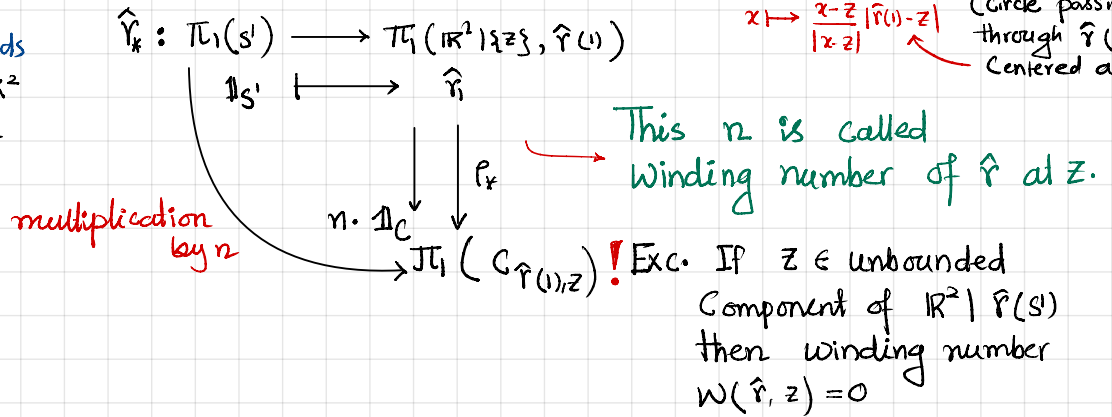 γ̂_* : π₁(S¹) ⟶ π₁(ℝ²\{z}, γ̂(1))
x ↦ (x-z)/|x-z| |γ̂(1)-z|
through γ̂(
Centered a
ds
𝟙_S¹ ⟼ γ̂₁
ρ_*
This n is called
Winding number of γ̂ at z.
multiplication
by n
n · 𝟙_C
π₁(C_γ̂(1),z)
! Exc. If z ∈ unbounded
Component of ℝ²\ γ̂(S¹)
then winding number
W(γ̂, z) = 0